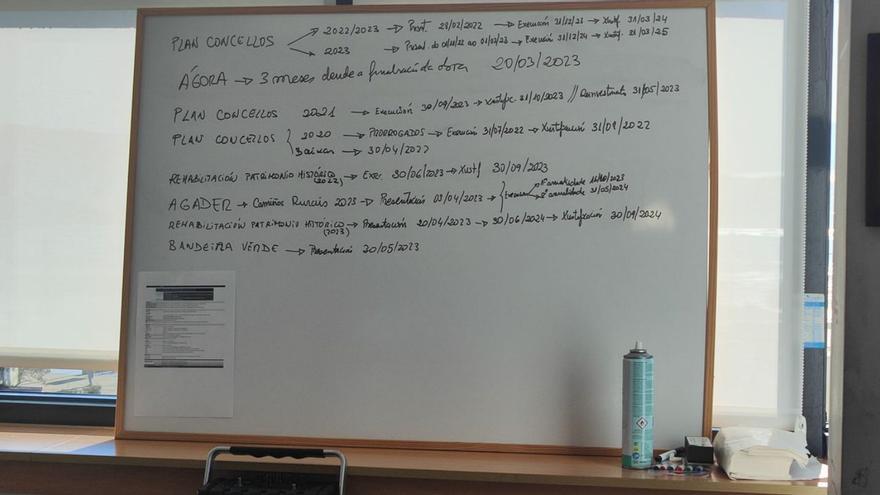 PLAN CONCELLOS
→ 2022/2023 → Prest. 28/02/2022 → Execución 31/12/23 → Xustf 31/03/24
→ 2023 → Present. do 01/11/22 ao 01/03/23 → Execució 31/12/24 → Xustf. 31/03/25
ÁGORA → 3 meses dende a finalización da obra 20/03/2023
PLAN CONCELLOS 2021 → Execusión 30/09/2023 → Xustific 31/10/2023 // Reinvestimento 31/05/2023
PLAN CONCELLOS
2020 → PRORROGADOS → Execución 31/07/2022 → Xustificación 31/09/2022
Baixas → 30/04/2022
REHABILITACIÓN PATRIMONIO HISTÓRICO (2022) → Exe. 30/06/2023 → Xustf 30/09/2023
AGADER → Camiños Rurais 2023 → Presentación 03/04/2023 → Execución
1ª anualidade 2023
2ª anualidade 31/05/2024
REHABILITACIÓN PATRIMONIO HISTÓRICO (2023) → Presentación 20/04/2023 → 30/06/2024 → Xustificación 30/09/2024
BANDEIRA VERDE → Presentación 30/05/2023